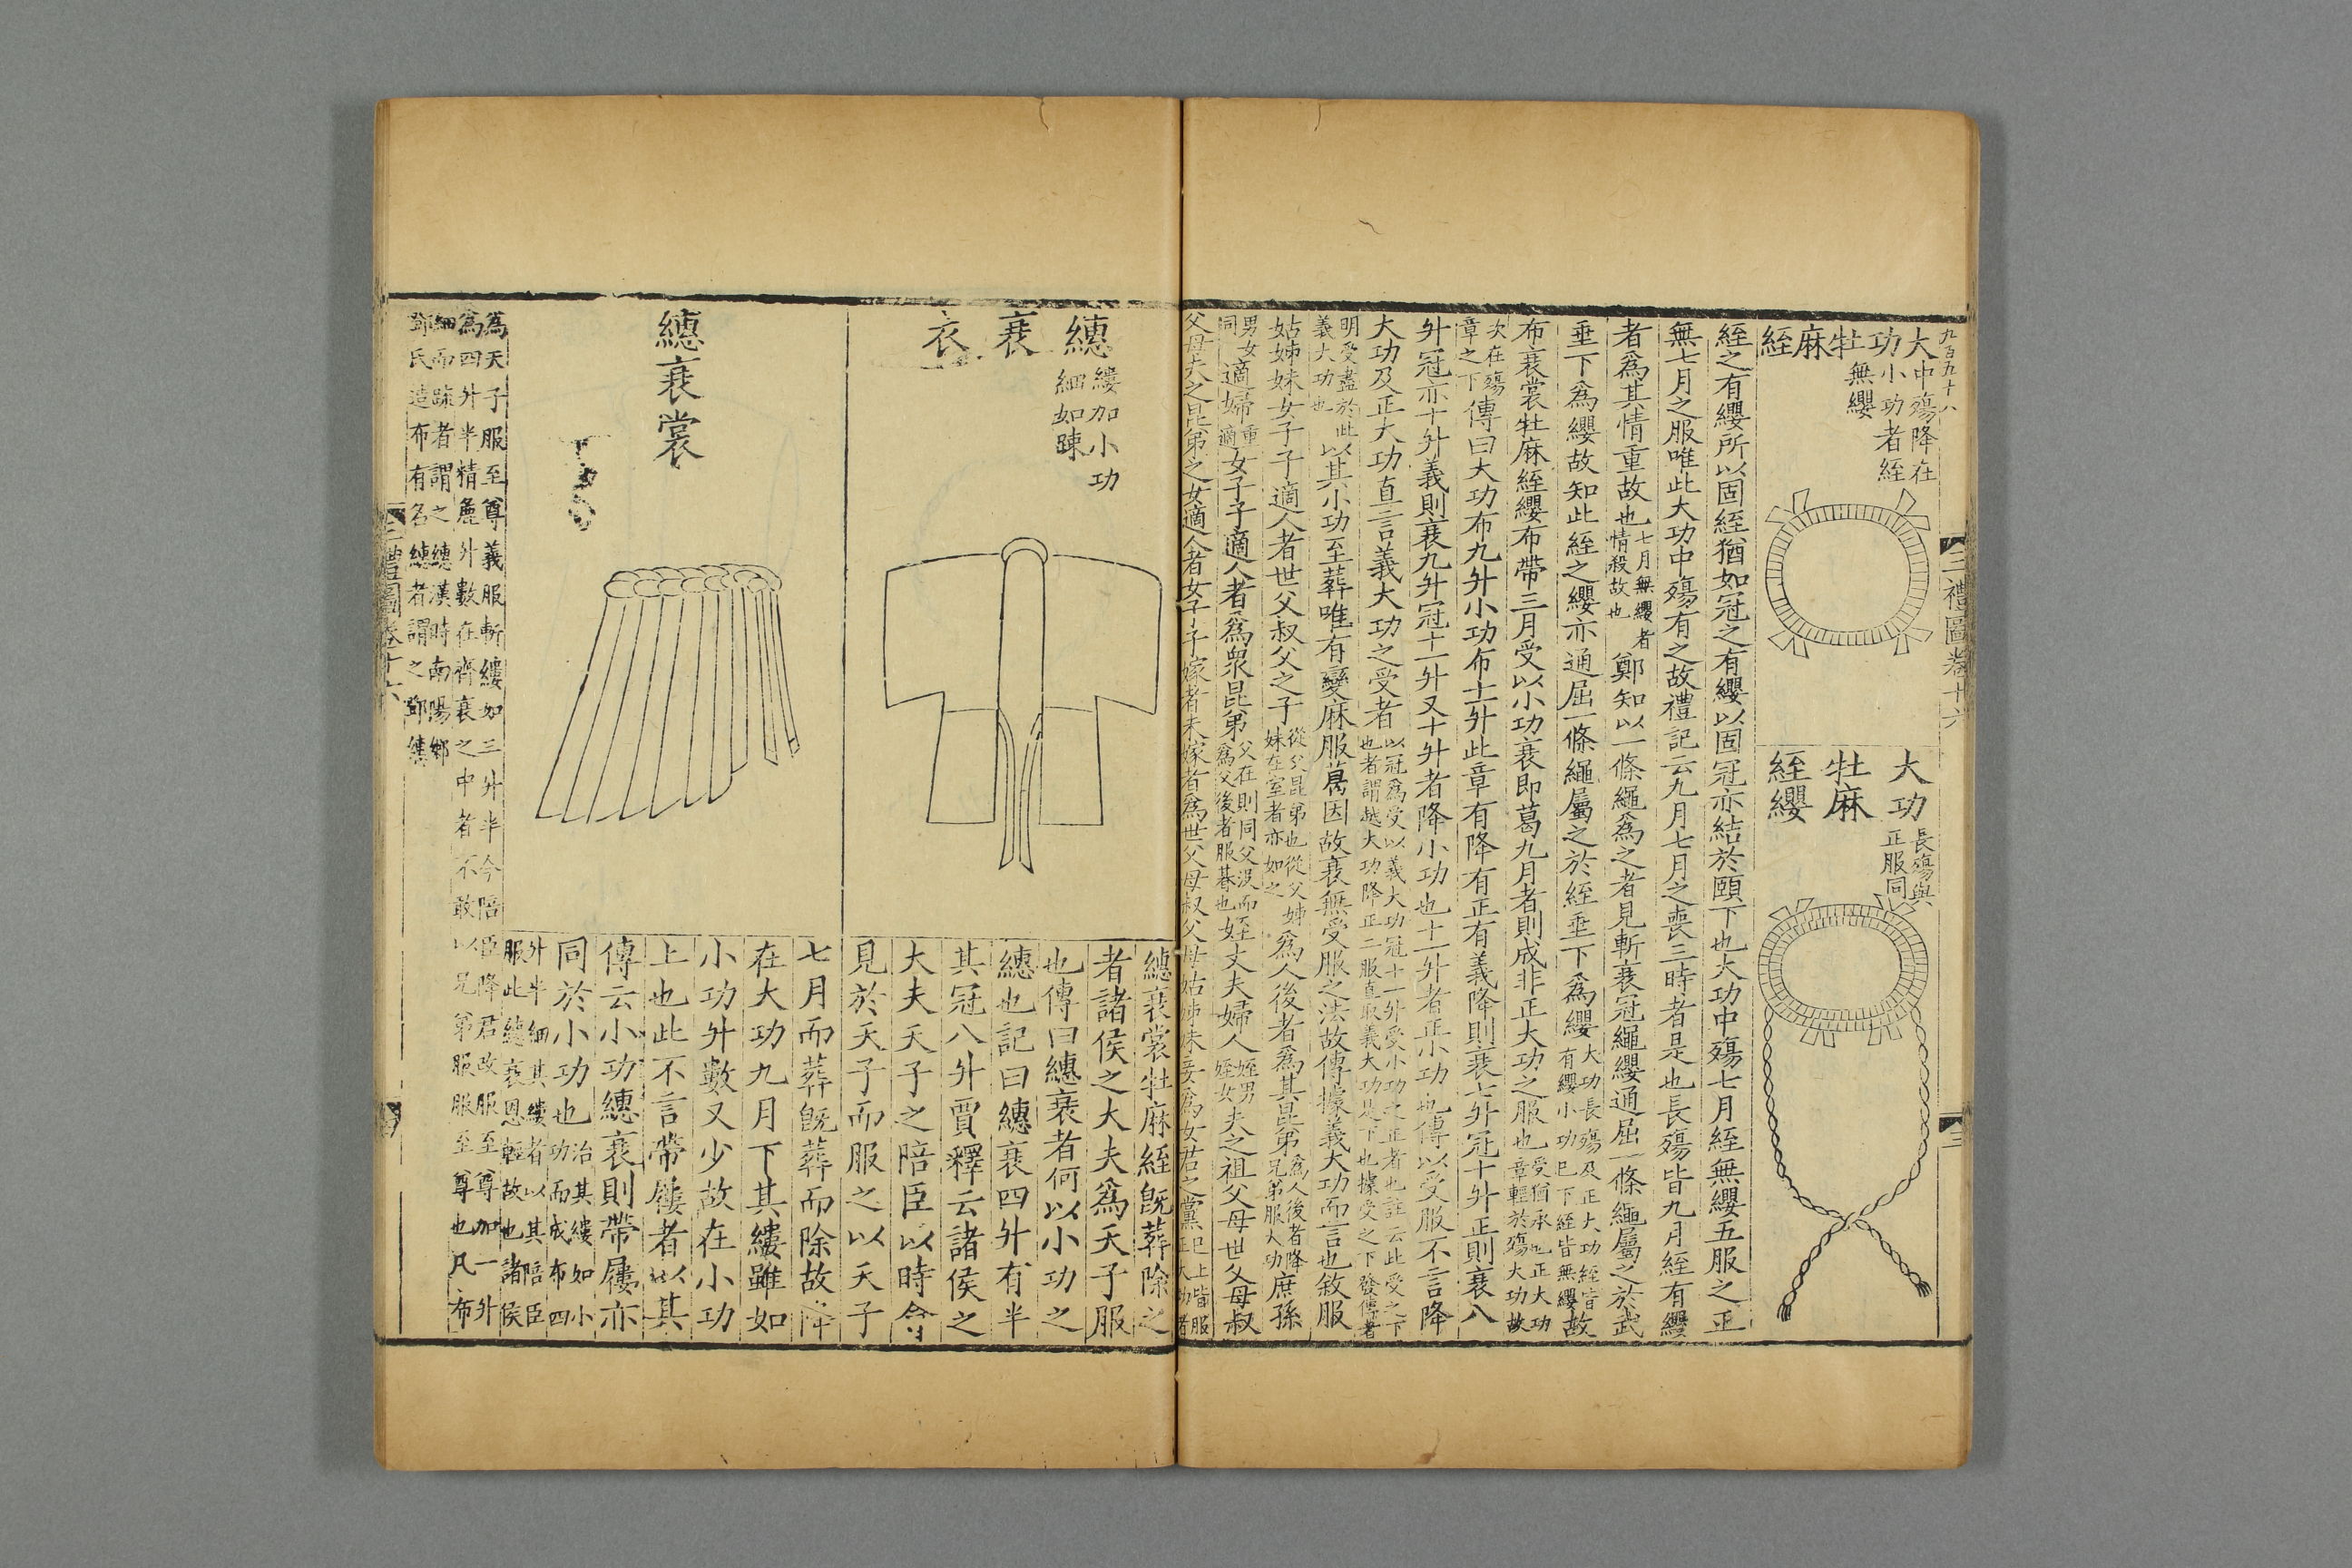 九百五十八
三禮圖卷十六
三
大功牡麻絰
中殤降在
小功者絰
無纓
大功
牡麻
絰纓
長殤與
正服同
絰之有纓所以固絰猶如冠之有纓以固冠亦結於頤下也大功中殤七月絰無纓五服之正
無七月之服唯此大功中殤有之故禮記云九月七月之喪三時者是也長殤皆九月絰有纓
者爲其情重故也七月無纓者情殺故也鄭知以一條繩爲之者見斬衰冠繩纓通屈一條繩屬之於武
垂下爲纓故知此絰之纓亦通屈一條繩屬之於絰垂下爲纓大功長殤及正大功絰皆有纓小功已下絰皆無纓故
布衰裳牡麻絰纓布帶三月受以小功衰即葛九月者則成非正大功之服也受猶承也正大功章輕於殤大功故
次在殤章之下傳曰大功布九升小功布十一升此章有降有正有義降則衰七升冠十升正則衰八
升冠亦十升義則衰九升冠十一升又十升者降小功也十一升者正小功也傳以受服不言降
大功及正大功直言義大功之受者以冠爲受以義大功冠十一升受小功之正者也註云此受之下也者謂越大功降正二服直取義大功是下也據受之下發傳者
明受盡於此義大功也以其小功至葬唯有變麻服葛因故衰無受服之法故傳據義大功而言也敘服
姑姊妹女子子適人者世父叔父之子從父昆弟也從父姊妹在室者亦如之爲人後者爲其昆弟爲人後者降兄弟服大功庶孫
男女同適婦適重女子子適人者爲衆昆弟父在則同父沒而爲父後者服朞也姪丈夫婦人姪男姪女夫之祖父母世父母叔
父母夫之昆弟之女適人者女子子嫁者未嫁者爲世父母叔父母姑姊妹妾爲女君之黨已上皆服正大功者
繐衰衣
縷加小功
細如踈
繐衰裳
繐衰裳牡麻絰旣葬除之
者諸侯之大夫爲天子服
也傳曰繐衰者何以小功之
繐也記曰繐衰四升有半
其冠八升賈釋云諸侯之
大夫天子之陪臣以時會
見於天子而服之以天子
七月而葬旣葬而除故降
在大功九月下其縷雖如
小功升數又少故在小功
上也此不言帶屨者以其
傳云小功繐衰則帶屨亦
同於小功也治其縷如小功而成布四
升半細其縷者以其陪臣
服此繐衰恩輕故也諸侯
爲天子服至尊義服斬縷如三升半今陪臣降君故服至尊加一升
爲四升半精麄升數在齊衰之中者不敢以兄弟服服至尊也凡布
細而踈者謂之繐漢時南陽鄉
鄧氏造布有名繐者謂之鄧繐
三禮圖卷十六